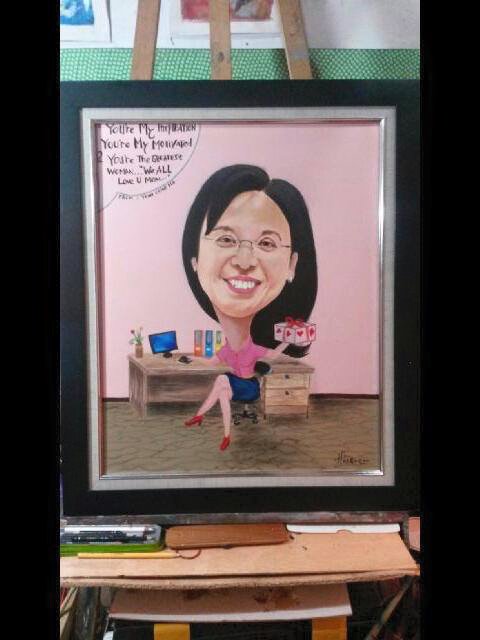 You're My Inspiration
You're My Motivated
You're The Greatest
Woman... "We All
Love U Mom..."